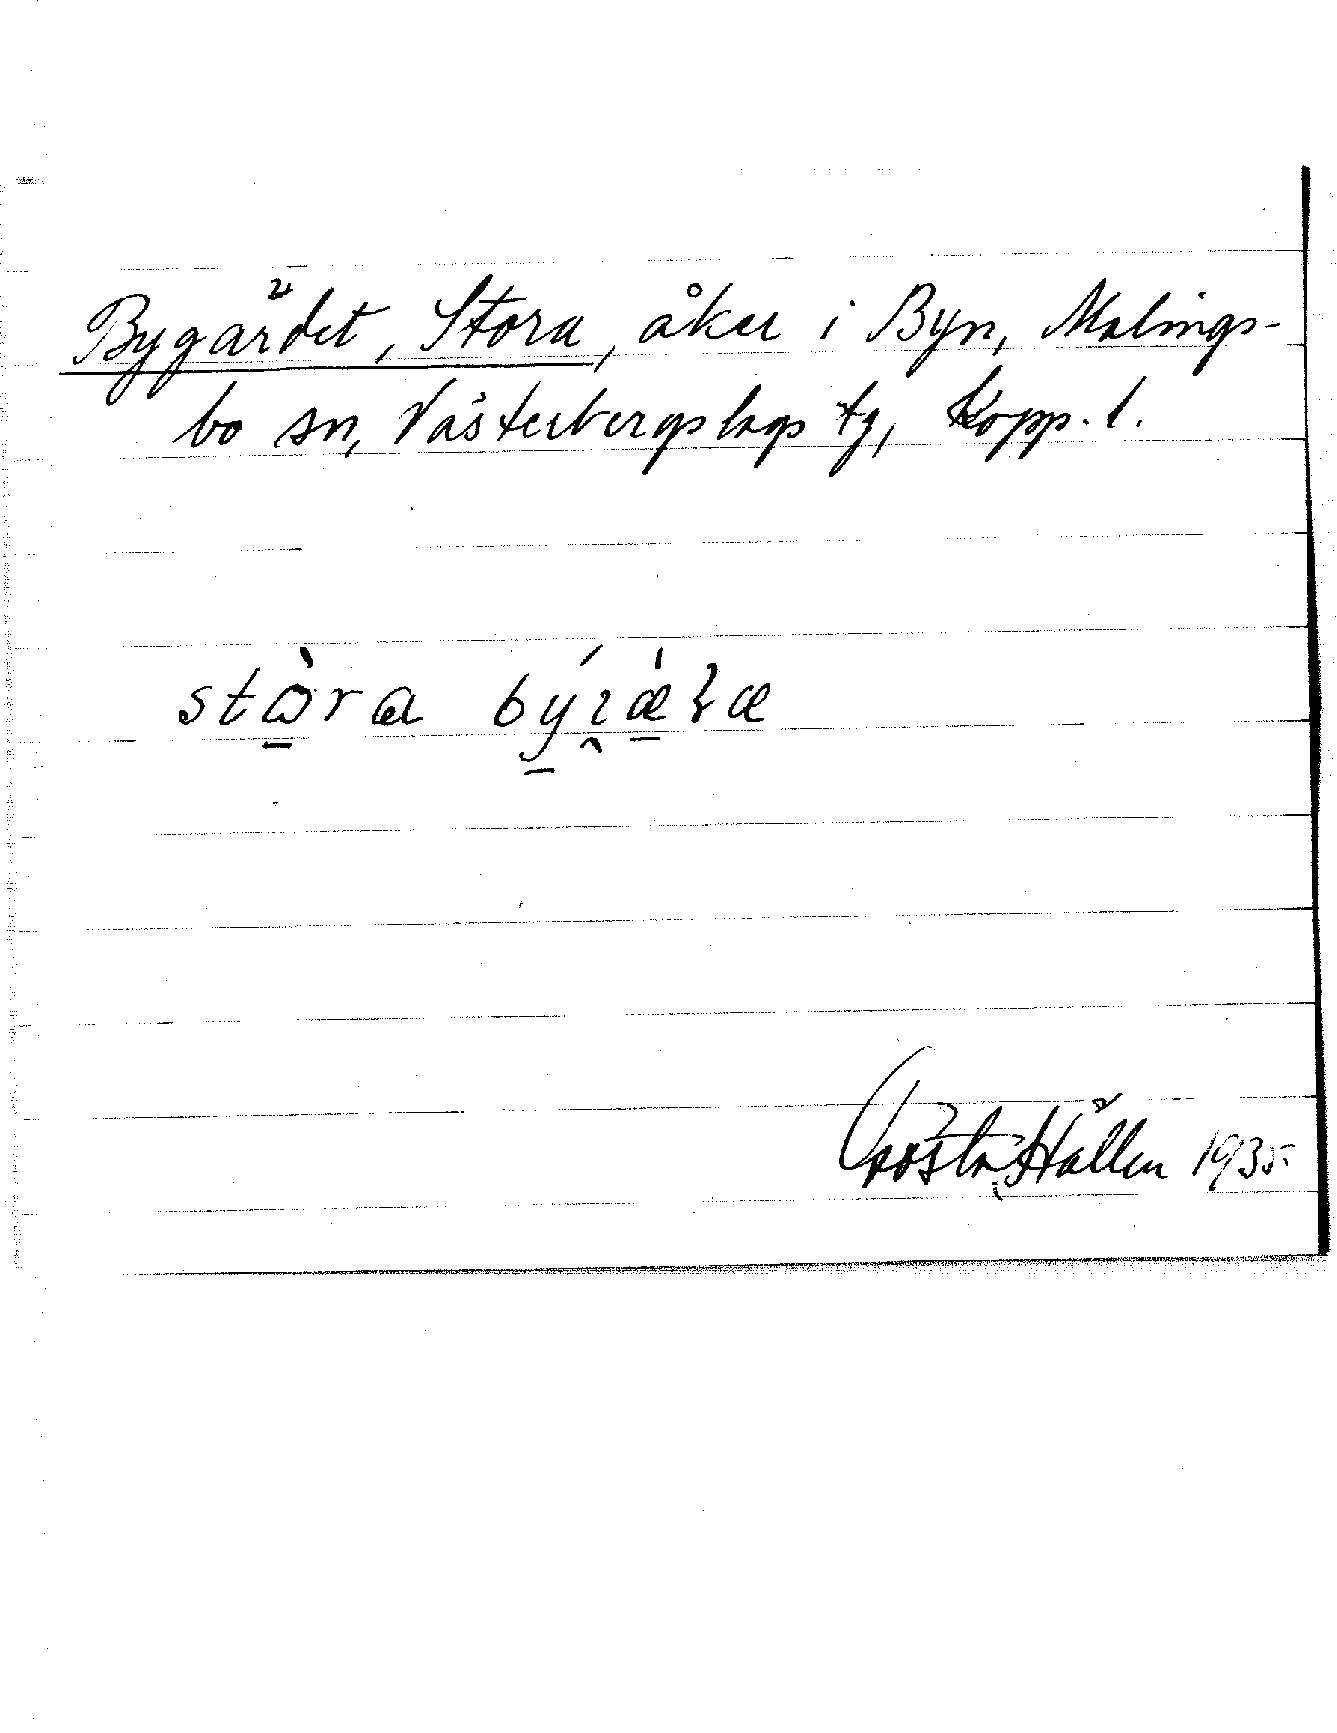 Bygärdet, Stora, åker i Byn, Malings-
bo sn, Västerbergslags tg, Kopp. l.
stòra býɿæ̀ꝛæ
Gösta Hållen 1935.